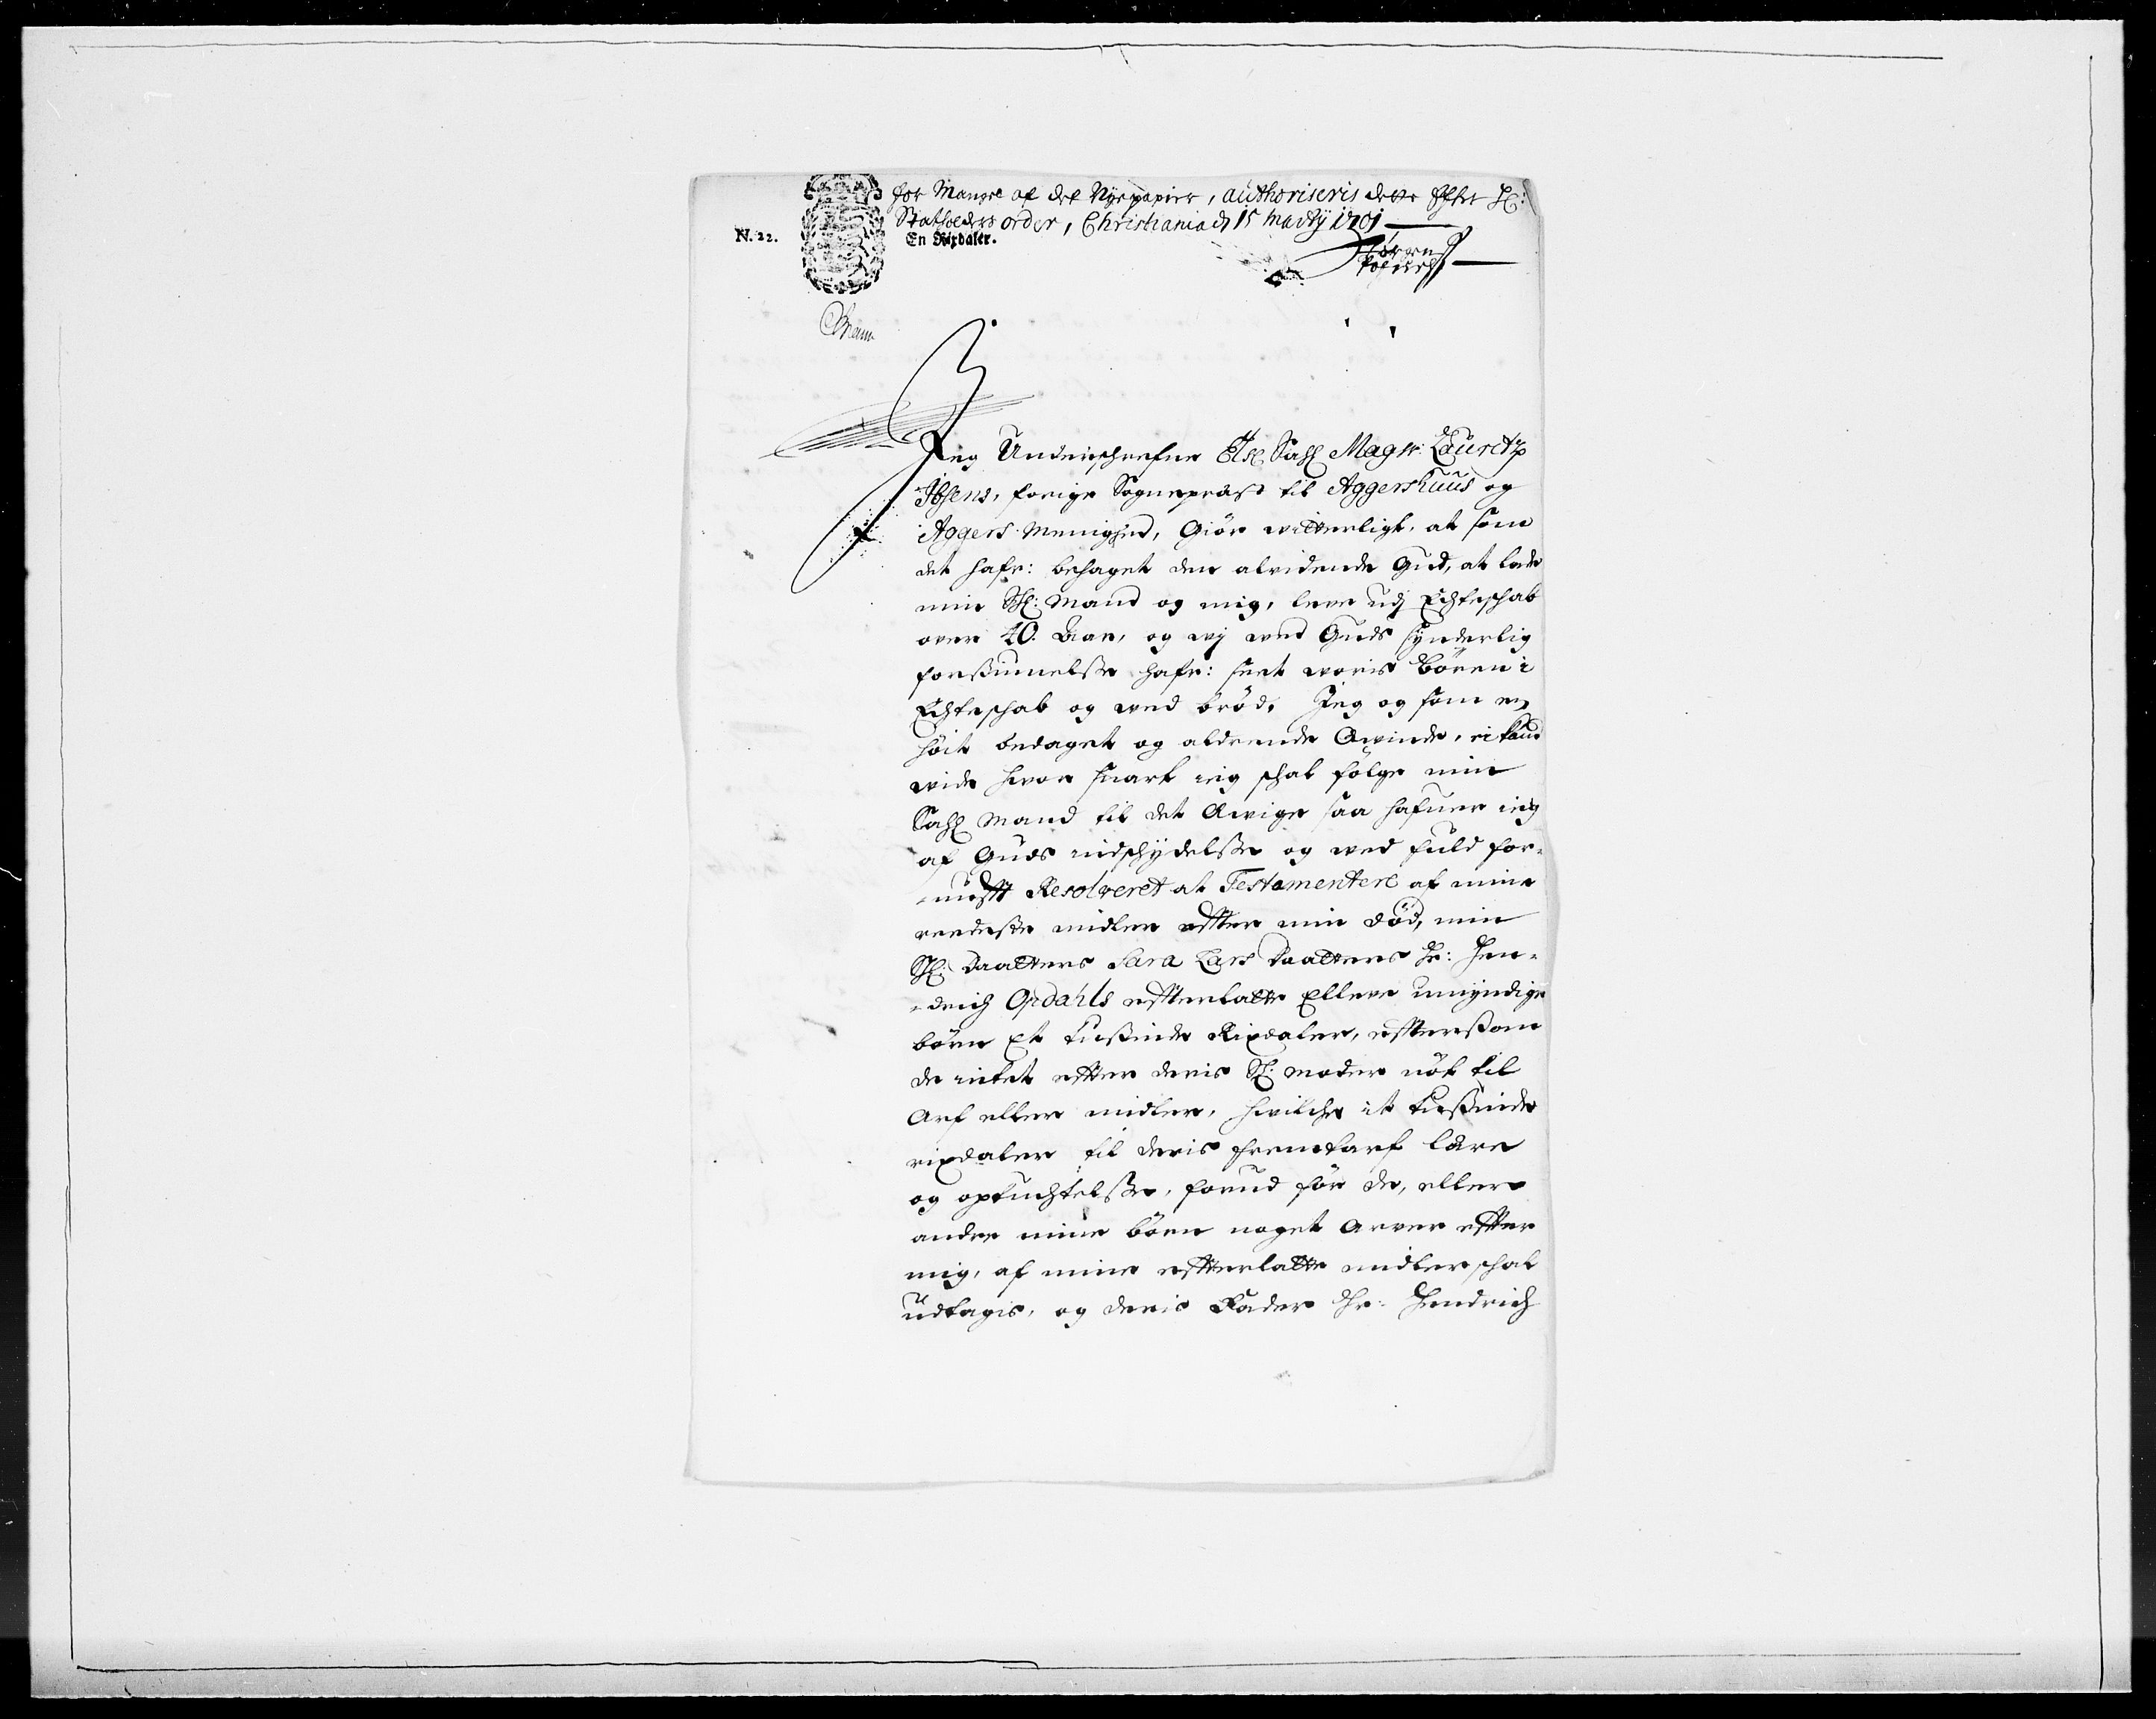 for Mangel af det Nye papier, authoriseris dette Effter H:
Statholders order, Christiania d 15 Martij 1701
N. 22.
En Rixdaler.
Jeg Underschrefne Else Sahl Magr: Lauretz
Ibsens, forige Sogneprest til Aggershuus og
Aggers Menighed, Giör witterligt, at som
det hafr: behaget den alvidende Gud, at lade
min Shl: Mand og mig, leve udj Echteschab
over 40. Aar, og wj wed Guds synderlig
forsiunelsse hafr: seet woris Börn i
Echteschab og wed bröd, Jeg og som en
höit bedaget og aldrende Qvinde, ei kand
wide hvor snart ieg schal fölge min
Sahl Mand til det Ævige saa hafuer ieg
af Guds indschydelsse og wed fuld for-
-nufft Resolveret at Testamentere af mine
reedeste midler effter min död, min
Shl: Daatters Sara Lars Daatters Hr: Hen-
-drich Opdahls effterlatte Elleve umyndige
börn Et tusinde Rixdaler, effterssom
de intet effter deris Sl: moder nöt til
Arf eller midler, hvilche it tusinde
rixdaler til deris fremtarf lære
og optuchtelsse, forud för de, eller
andre mine börn noget Arver effter
mig, af mine effterlatte midler schal
udtagis, og deris Fader Hr: Hendrich